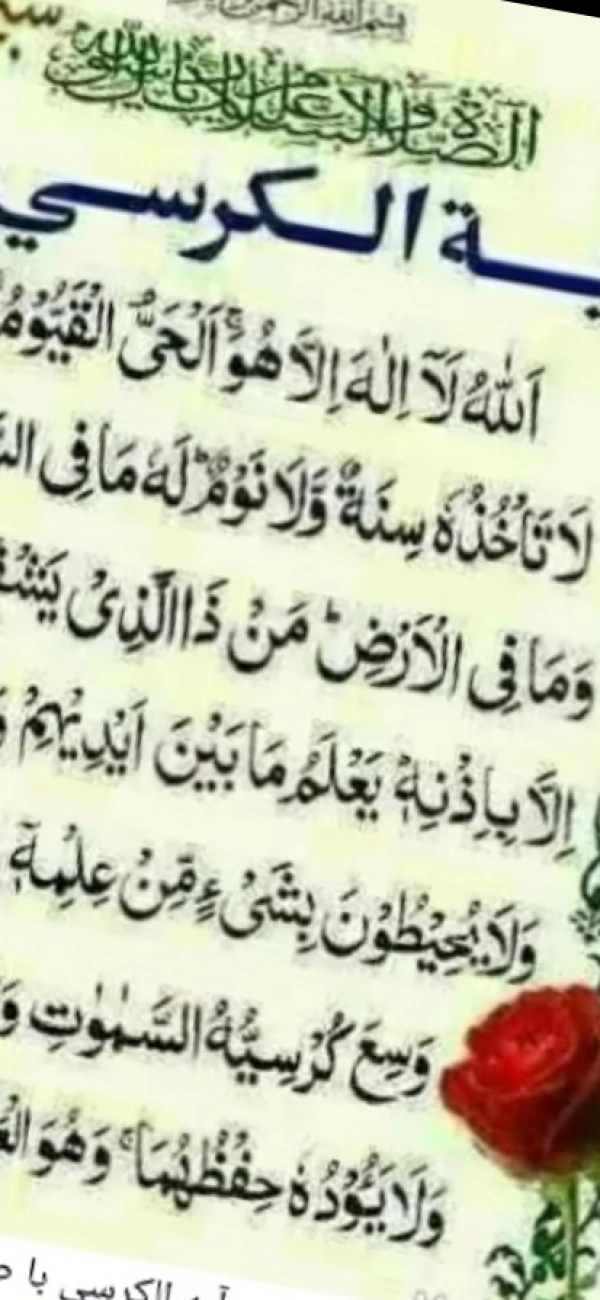 بسم الله الرحمن الرحيم
الصلاة والسلام عليك يا رسول الله
ـة الـكرسي
اَللّٰهُ لَآ اِلٰهَ اِلَّا هُوَ ۚ اَلْحَیُّ الْقَیُّوْمُ
لَا تَاْخُذُهٗ سِنَةٌ وَّلَا نَوْمٌ ؕ لَهٗ مَا فِی
وَمَا فِی الْاَرْضِ ؕ مَنْ ذَا الَّذِیْ
اِلَّا بِاِذْنِهٖ ؕ یَعْلَمُ مَا بَیْنَ اَیْدِیْهِمْ
وَلَا یُحِیْطُوْنَ بِشَیْءٍ مِّنْ عِلْمِهٖۤ
وَسِعَ كُرْسِیُّهُ السَّمٰوٰتِ
وَلَا یَـُٔوْدُهٗ حِفْظُهُمَا ۚ وَهُوَ
آیه الکرسی با